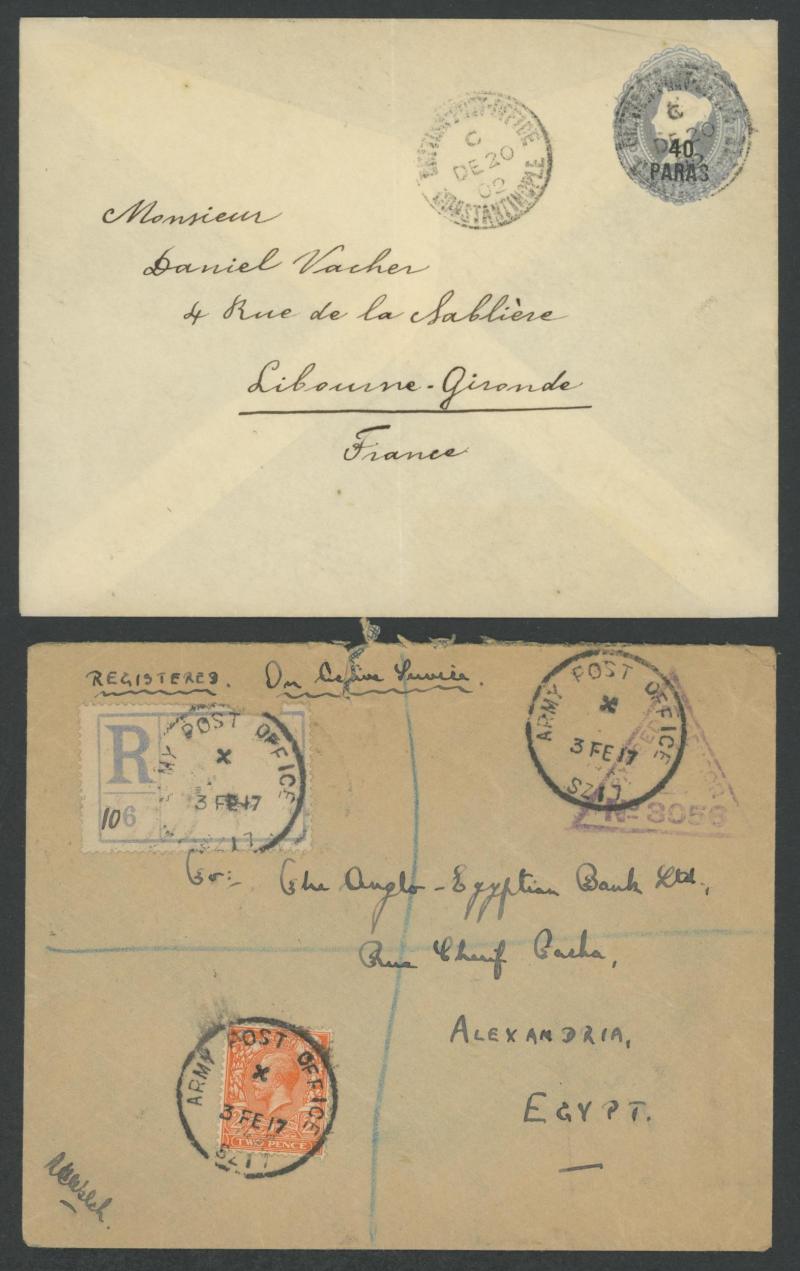 BRITISH·POST·OFFICE
C
DE 20
02
CONSTANTINOPLE
BRITISH·POST·OFFICE
C
DE 20
02
40
PARAS
Monsieur
Daniel Vacher
4 Rue de la Sablière
Libourne-Gironde
France
REGISTERED. On Active Service.
R
106
ARMY POST OFFICE
3 FE 17
SZ17
ARMY POST OFFICE
3 FE 17
SZ17
PASSED CENSOR
No 3056
To:- The Anglo-Egyptian Bank Ltd.,
Rue Cherif Pacha,
ALEXANDRIA,
EGYPT.
ARMY POST OFFICE
3 FE 17
SZ17
TWO PENCE